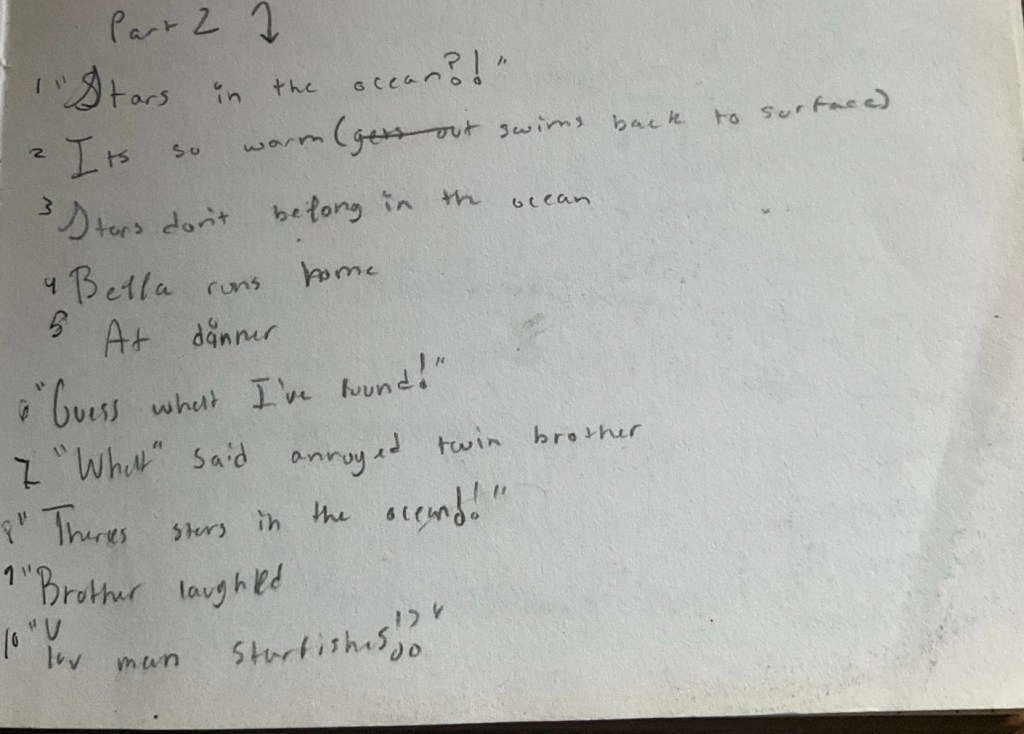 Part 2 ↓
1 "Stars in the ocean?!"
2 Its so warm (gets out swims back to surface)
3 Stars don't belong in the ocean
4 Bella runs home
5 At dinner
6 "Guess what I've found!"
7 "What" said annoyed twin brother
8 "Theres stars in the ocean!"
9 "Brother laughed
10 "U mean Starfishes!?"